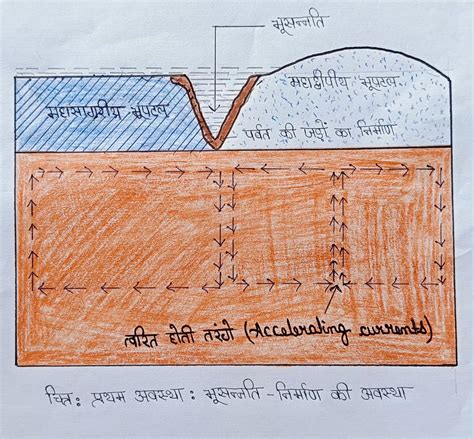 भूसन्नति
महासागरीय भूपटल
महाद्वीपीय भूपटल
पर्वत की जड़ों का निर्माण
त्वरित होती तरंगे (Accelerating currents)
चित्र: प्रथम अवस्था: भूसन्नति-निर्माण की अवस्था